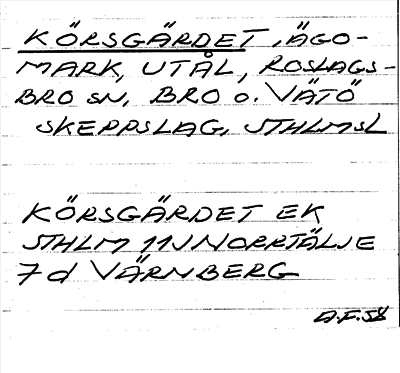 KÖRSGÄRDET, ÄGO-
MARK, UTÅL, ROSLAGS-
BRO SN, BRO O. VÄTÖ
SKEPPSLAG, STHLMSL
KÖRSGÄRDET EK
STHLM 11J NORRTÄLJE
7d VÄRNBERG
A.F. 58